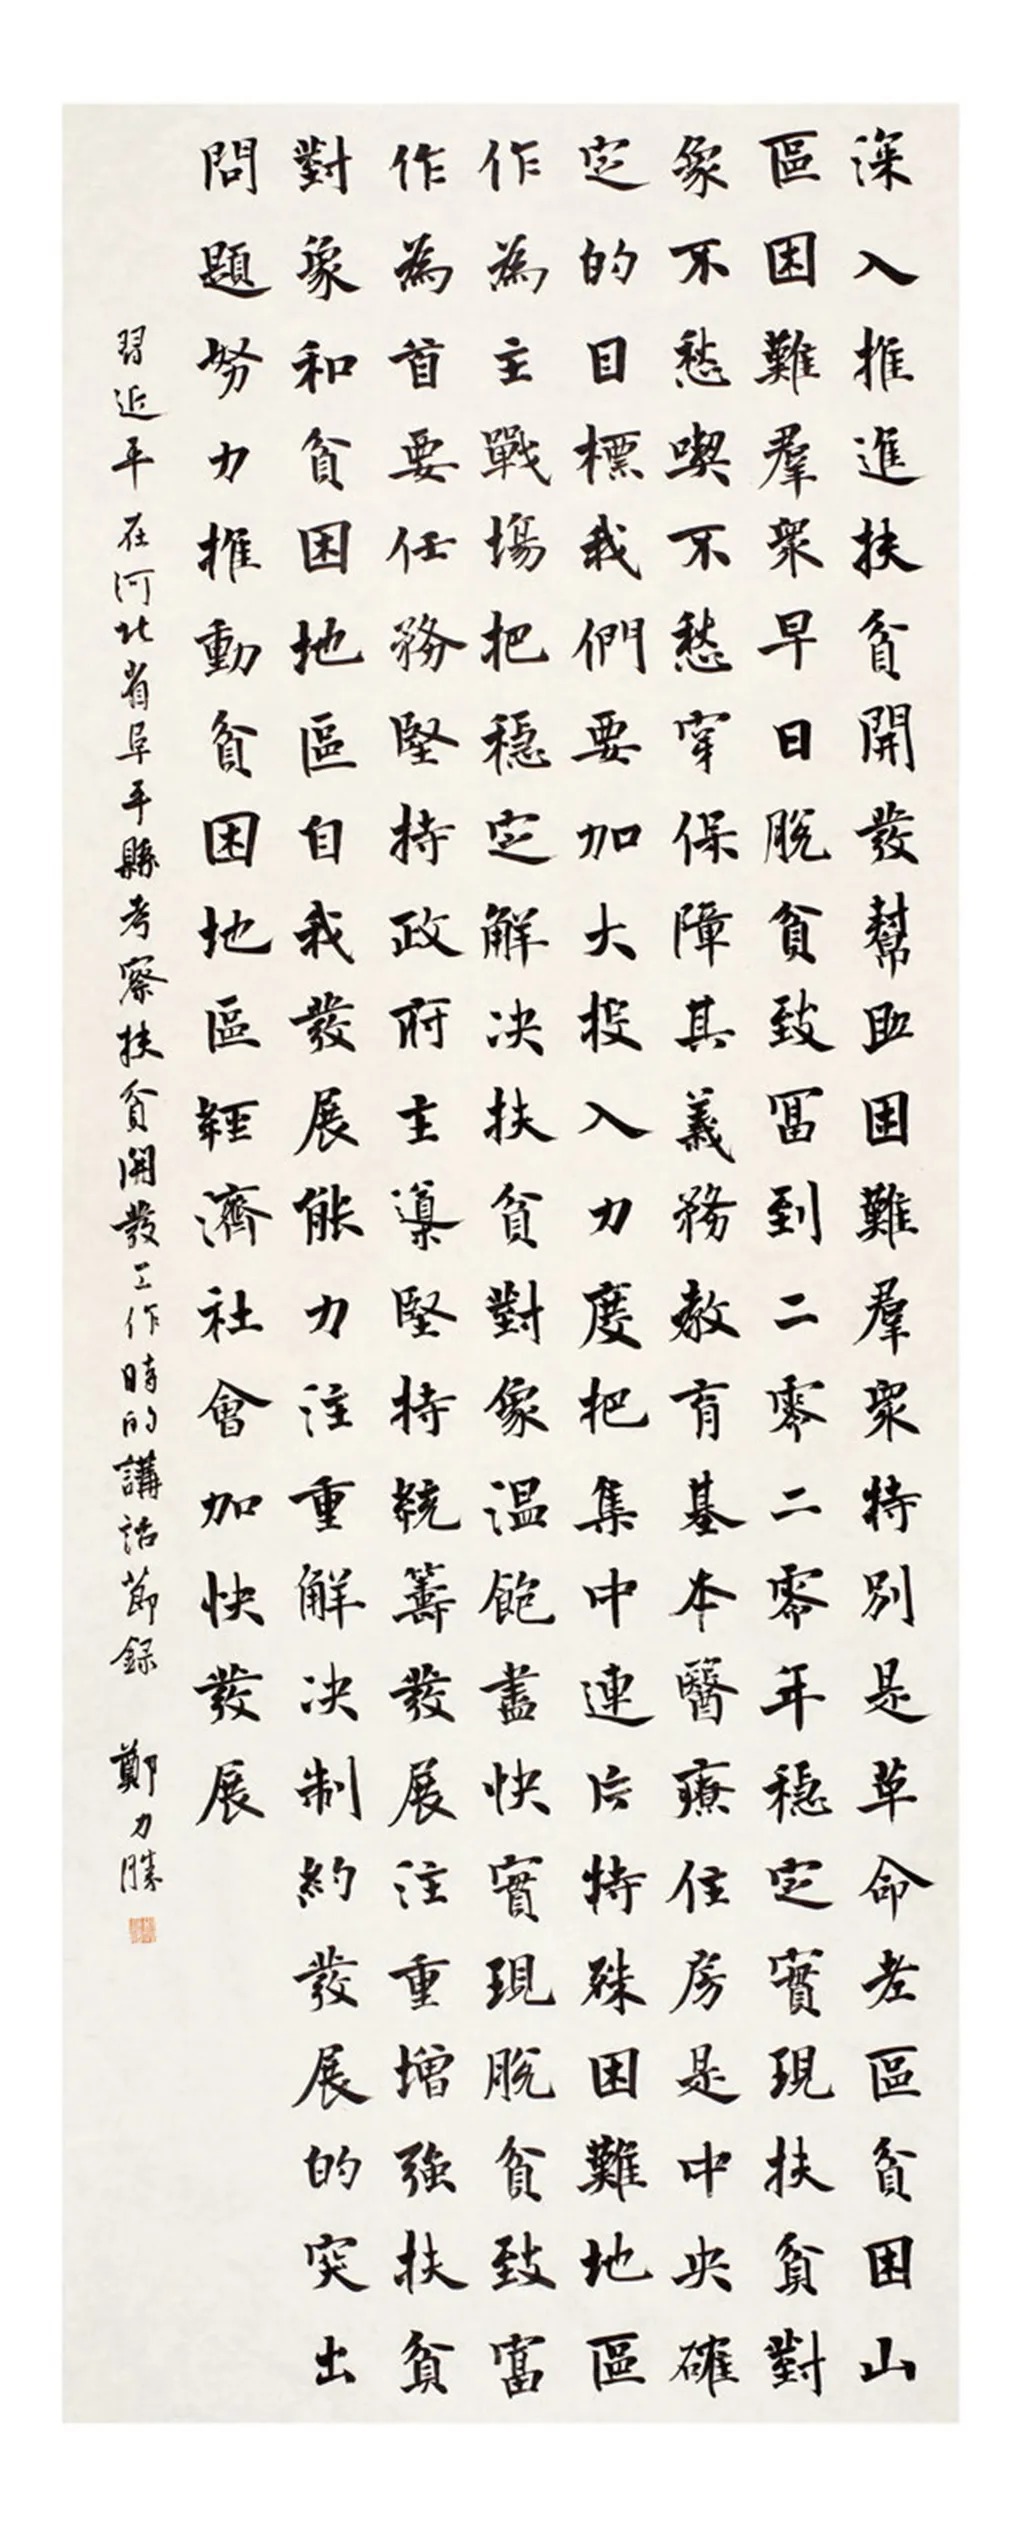 深入推進扶貧開發幫助困難羣衆特別是革命老區貧困山
區困難羣衆早日脫貧致冨到二零二零年穩定實現扶貧對
象不愁喫不愁穿保障其義務教育基本醫療住房是中央確
定的目標我們要加大投入力度把集中連片特殊困難地區
作為主戰場把穩定解决扶貧對象温飽盡快實現脫貧致富
作為首要任務堅持政府主導堅持統籌發展注重增強扶貧
對象和貧困地區自我發展能力注重解决制約發展的突出
問題努力推動貧困地區經濟社會加快發展
習近平在河北省阜平縣考察扶貧開發工作時的講話節録 鄭力勝